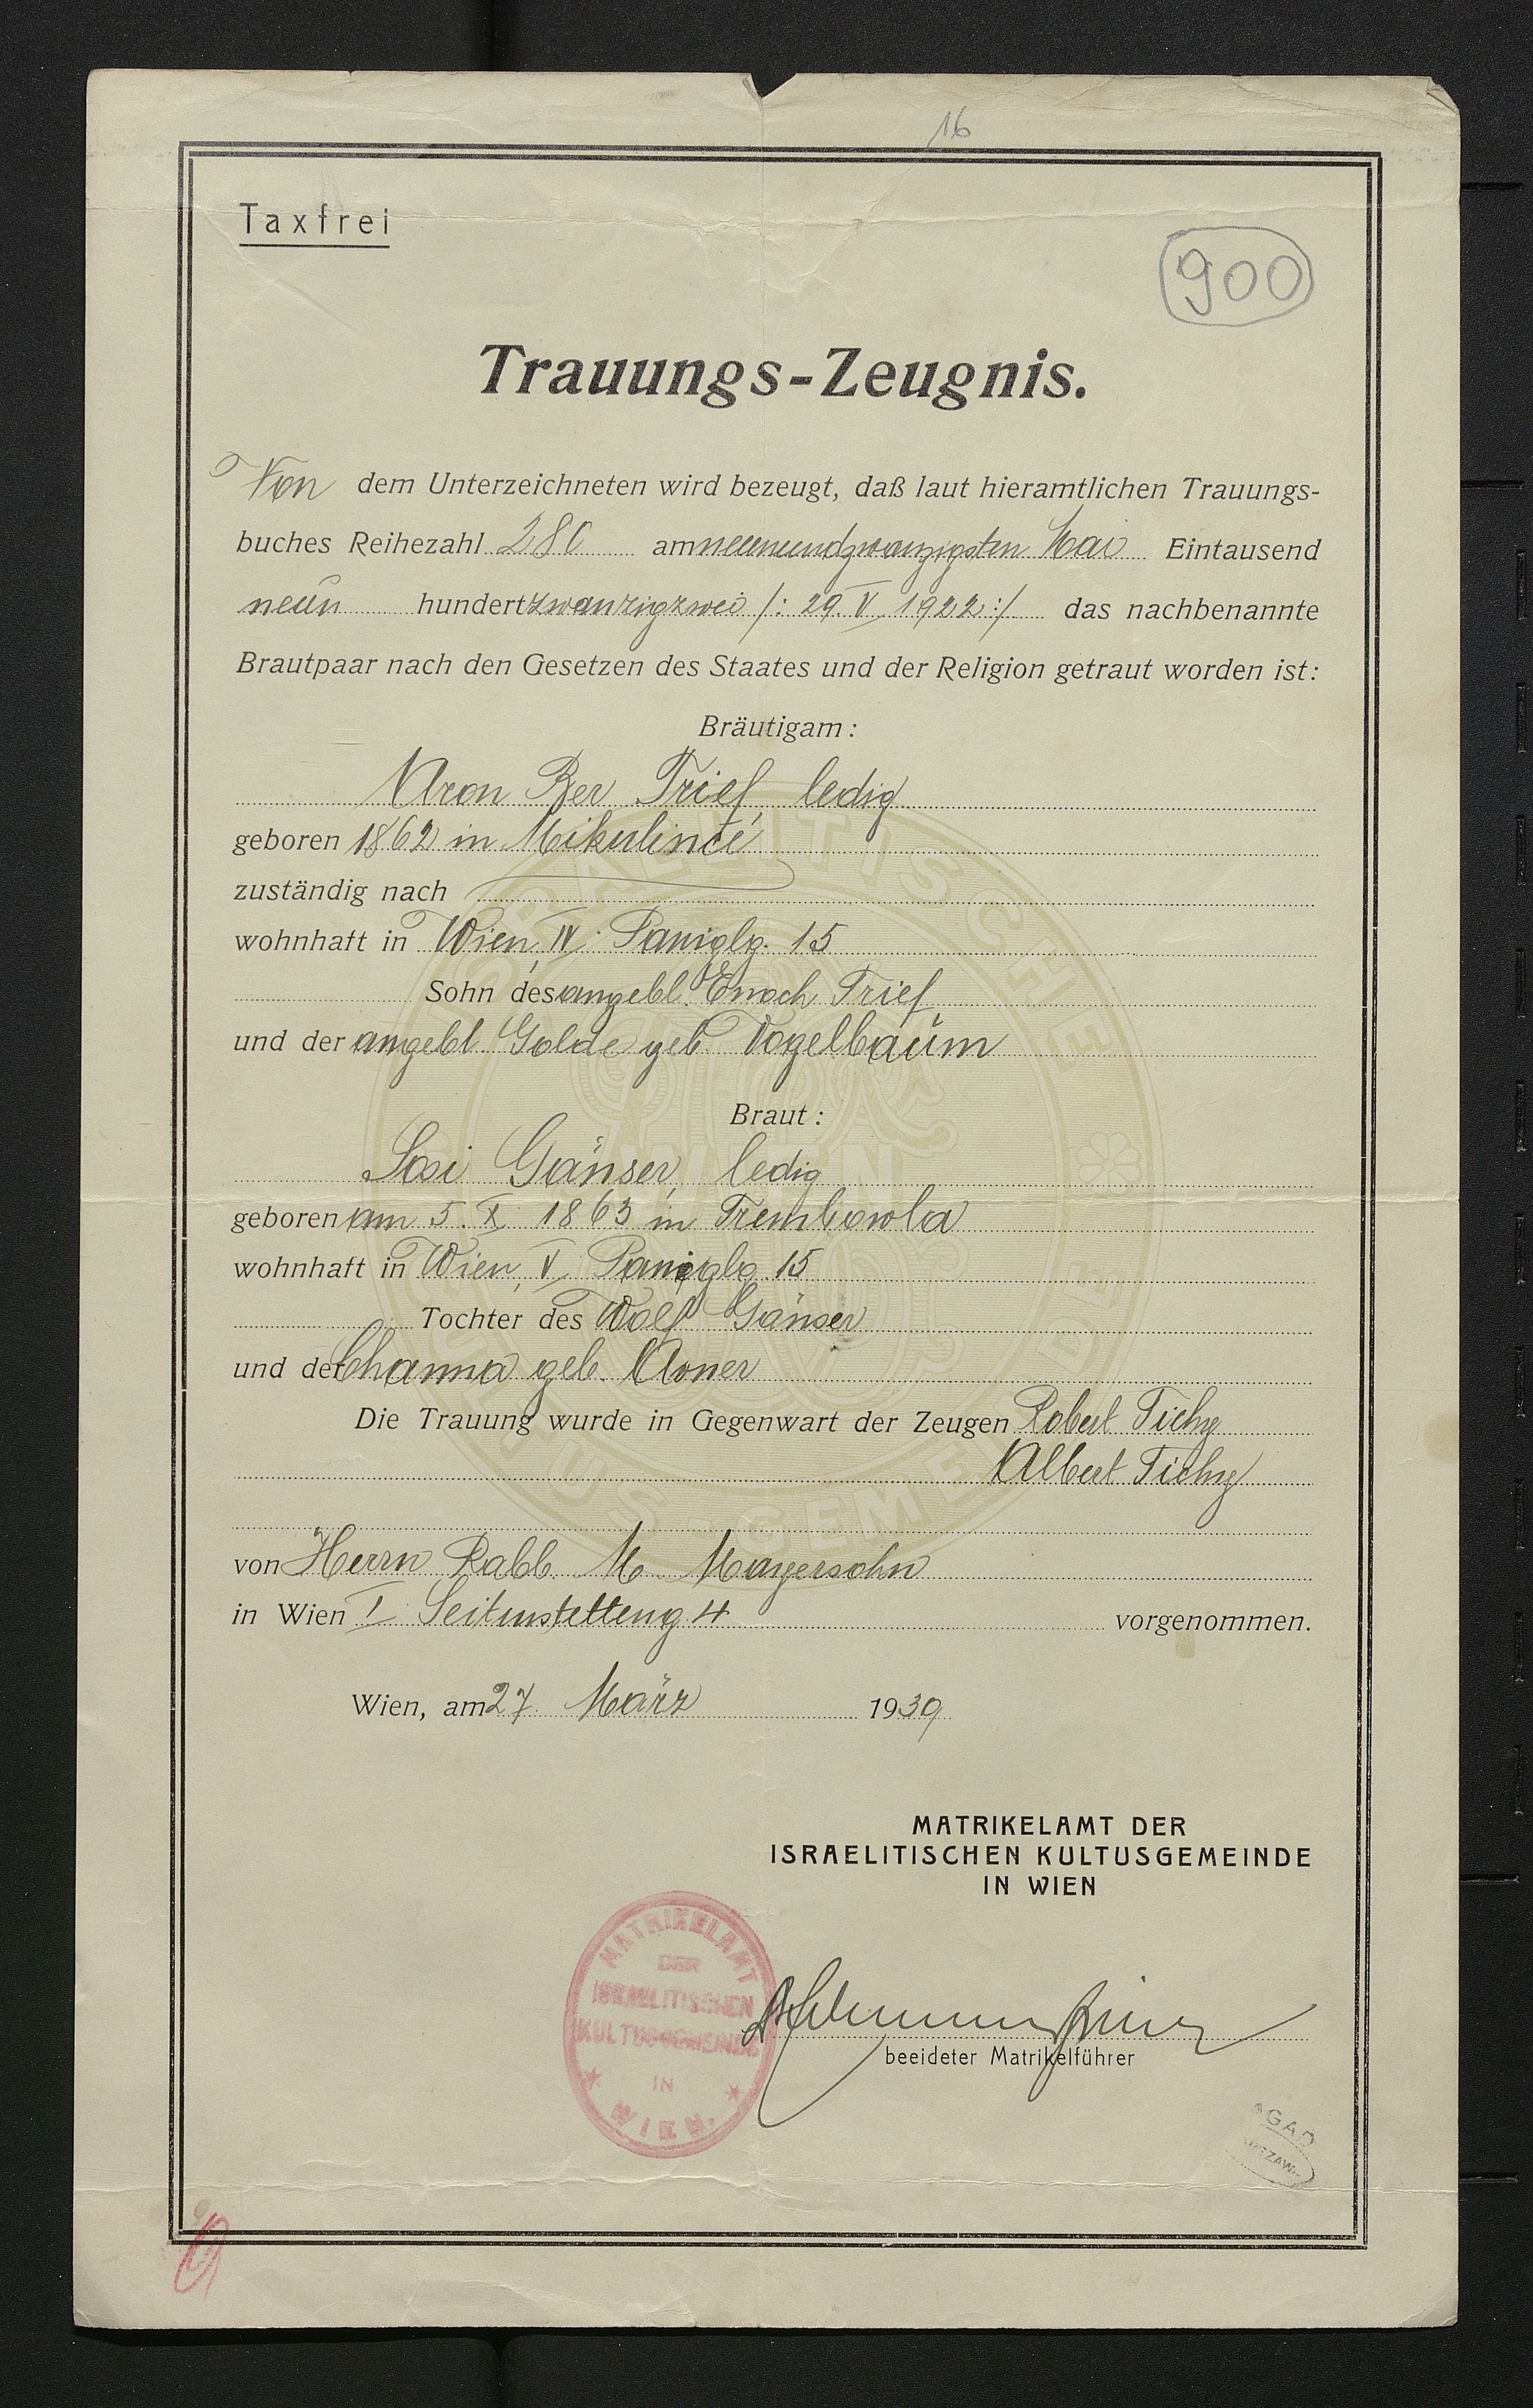 16
Taxfrei
900
Trauungs-Zeugnis.
Von dem Unterzeichneten wird bezeugt, daß laut hieramtlichen Trauungs-
buches Reihezahl 280 am neunundzwanzigsten Mai Eintausend
neun hundert zwanzigzwei /: 29. V. 1922 :/ das nachbenannte
Brautpaar nach den Gesetzen des Staates und der Religion getraut worden ist:
Bräutigam:
Aron Ber Trief, ledig
geboren 1862 in Mikulince
zuständig nach
wohnhaft in Wien, IV. Paniglg. 15
Sohn des angebl. Enoch Trief,
und der angebl. Golde geb. Vogelbaum
Braut:
Sosi Gänser, ledig
geboren am 5. X. 1863 in Trembowla
wohnhaft in Wien, V. Paniglg. 15
Tochter des Wolf Gänser
und der Channa geb. Avner
Die Trauung wurde in Gegenwart der Zeugen Robert Tichy
Albert Tichy
von Herrn Rabb. M. Mayersohn
in Wien I. Seitenstetteng. 4 vorgenommen.
Wien, am 27. März 1939
MATRIKELAMT DER
ISRAELITISCHEN KULTUSGEMEINDE
IN WIEN
MATRIKELAMT
DER
ISRAELITISCHEN
KULTUSGEMEINDE
IN
WIEN
beeideter Matrikelführer
AGAD
WARSZAWA
ISRAELITISCHE KULTUSGEMEINDE WIEN